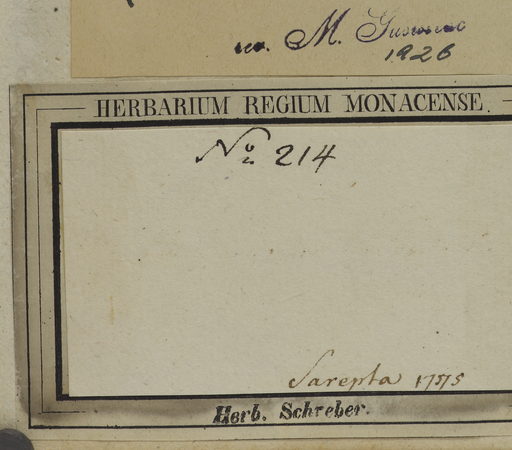 M.
1926
HERBARIUM REGIUM MONACENSE.
No. 214
Sarepta 1775
Herb. Schreber.